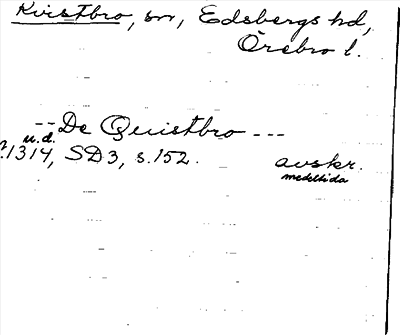 Kvistbro, sn, Edsbergs hd,
Örebro l.
-- De Quistbro ---
u.d.
1314, SD3, s.152. avskr.
medeltida